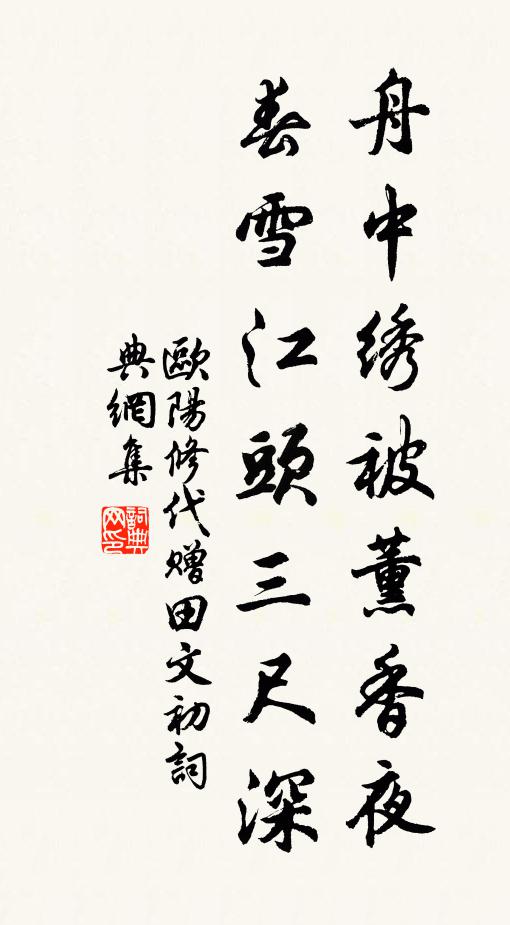 舟中绣被薰香夜
春雪江頭三尺深
歐陽修代赠田文初詞
典網集
詞典
网印